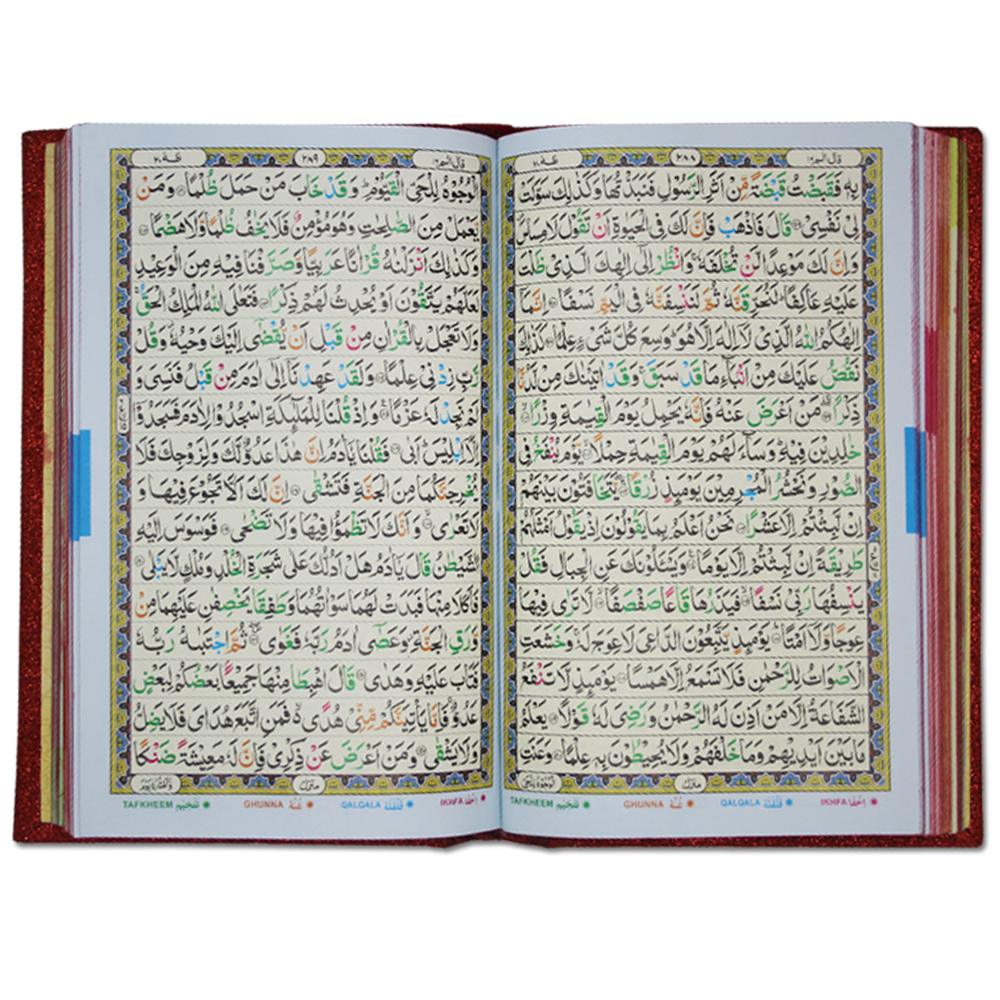 قال الم ١٦
٢٨٨
طٰهٰ ٢٠
بِهٖ فَقَبَضْتُ قَبْضَةً مِّنْ اَثَرِ الرَّسُوْلِ فَنَبَذْتُهَا وَكَذٰلِكَ سَوَّلَتْ
لِیْ نَفْسِیْ۝ قَالَ فَاذْهَبْ فَاِنَّ لَكَ فِی الْحَیٰوةِ اَنْ تَقُوْلَ لَا مِسَاسَ
وَاِنَّ لَكَ مَوْعِدًا لَّنْ تُخْلَفَهٗ وَانْظُرْ اِلٰۤی اِلٰهِكَ الَّذِیْ ظَلْتَ
عَلَیْهِ عَاكِفًا لَنُحَرِّقَنَّهٗ ثُمَّ لَنَنْسِفَنَّهٗ فِی الْیَمِّ نَسْفًا۝ اِنَّمَاۤ
اِلٰهُكُمُ اللّٰهُ الَّذِیْ لَاۤ اِلٰهَ اِلَّا هُوَ وَسِعَ كُلَّ شَیْءٍ عِلْمًا۝ كَذٰلِكَ
نَقُصُّ عَلَیْكَ مِنْ اَنْۢبَآءِ مَا قَدْ سَبَقَ وَقَدْ اٰتَیْنٰكَ مِنْ لَّدُنَّا
ذِكْرًا۝ مَنْ اَعْرَضَ عَنْهُ فَاِنَّهٗ یَحْمِلُ یَوْمَ الْقِیٰمَةِ وِزْرًا۝
خٰلِدِیْنَ فِیْهِ وَسَآءَ لَهُمْ یَوْمَ الْقِیٰمَةِ حِمْلًا۝ یَّوْمَ یُنْفَخُ فِی
الصُّوْرِ وَنَحْشُرُ الْمُجْرِمِیْنَ یَوْمَىِٕذٍ زُرْقًا۝ یَّتَخَافَتُوْنَ بَیْنَهُمْ
اِنْ لَّبِثْتُمْ اِلَّا عَشْرًا۝ نَحْنُ اَعْلَمُ بِمَا یَقُوْلُوْنَ اِذْ یَقُوْلُ اَمْثَلُهُمْ
طَرِیْقَةً اِنْ لَّبِثْتُمْ اِلَّا یَوْمًا۝ وَیَسْـَٔلُوْنَكَ عَنِ الْجِبَالِ فَقُلْ
یَنْسِفُهَا رَبِّیْ نَسْفًا۝ فَیَذَرُهَا قَاعًا صَفْصَفًا۝ لَّا تَرٰی فِیْهَا
عِوَجًا وَّلَاۤ اَمْتًا۝ یَوْمَىِٕذٍ یَّتَّبِعُوْنَ الدَّاعِیَ لَا عِوَجَ لَهٗ وَخَشَعَتِ
الْاَصْوَاتُ لِلرَّحْمٰنِ فَلَا تَسْمَعُ اِلَّا هَمْسًا۝ یَوْمَىِٕذٍ لَّا تَنْفَعُ
الشَّفَاعَةُ اِلَّا مَنْ اَذِنَ لَهُ الرَّحْمٰنُ وَرَضِیَ لَهٗ قَوْلًا۝ یَعْلَمُ
مَا بَیْنَ اَیْدِیْهِمْ وَمَا خَلْفَهُمْ وَلَا یُحِیْطُوْنَ بِهٖ عِلْمًا۝ وَعَنَتِ
منزل
IKHFA اِخْفَا
QALQALA قَلْقَلَة
GHUNNA غُنَّه
TAFKHEEM تَفْخِیْم
قال الم ١٦
٢٨٩
طٰهٰ ٢٠
الْوُجُوْهُ لِلْحَیِّ الْقَیُّوْمِ وَقَدْ خَابَ مَنْ حَمَلَ ظُلْمًا۝ وَمَنْ
یَّعْمَلْ مِنَ الصّٰلِحٰتِ وَهُوَ مُؤْمِنٌ فَلَا یَخٰفُ ظُلْمًا وَّلَا هَضْمًا۝
وَكَذٰلِكَ اَنْزَلْنٰهُ قُرْاٰنًا عَرَبِیًّا وَّصَرَّفْنَا فِیْهِ مِنَ الْوَعِیْدِ
لَعَلَّهُمْ یَتَّقُوْنَ اَوْ یُحْدِثُ لَهُمْ ذِكْرًا۝ فَتَعٰلَی اللّٰهُ الْمَلِكُ الْحَقُّ
وَلَا تَعْجَلْ بِالْقُرْاٰنِ مِنْ قَبْلِ اَنْ یُّقْضٰۤی اِلَیْكَ وَحْیُهٗ وَقُلْ
رَّبِّ زِدْنِیْ عِلْمًا۝ وَلَقَدْ عَهِدْنَاۤ اِلٰۤی اٰدَمَ مِنْ قَبْلُ فَنَسِیَ وَ
لَمْ نَجِدْ لَهٗ عَزْمًا۝ وَاِذْ قُلْنَا لِلْمَلٰٓىِٕكَةِ اسْجُدُوْا لِاٰدَمَ فَسَجَدُوْۤا
اِلَّاۤ اِبْلِیْسَ اَبٰی۝ فَقُلْنَا یٰۤاٰدَمُ اِنَّ هٰذَا عَدُوٌّ لَّكَ وَلِزَوْجِكَ فَلَا
یُخْرِجَنَّكُمَا مِنَ الْجَنَّةِ فَتَشْقٰی۝ اِنَّ لَكَ اَلَّا تَجُوْعَ فِیْهَا وَ
لَا تَعْرٰی۝ وَاَنَّكَ لَا تَظْمَؤُا فِیْهَا وَلَا تَضْحٰی۝ فَوَسْوَسَ اِلَیْهِ
الشَّیْطٰنُ قَالَ یٰۤاٰدَمُ هَلْ اَدُلُّكَ عَلٰی شَجَرَةِ الْخُلْدِ وَمُلْكٍ لَّا یَبْلٰی۝
فَاَكَلَا مِنْهَا فَبَدَتْ لَهُمَا سَوْاٰتُهُمَا وَطَفِقَا یَخْصِفٰنِ عَلَیْهِمَا مِنْ
وَّرَقِ الْجَنَّةِ وَعَصٰۤی اٰدَمُ رَبَّهٗ فَغَوٰی۝ ثُمَّ اجْتَبٰىهُ رَبُّهٗ
فَتَابَ عَلَیْهِ وَهَدٰی۝ قَالَ اهْبِطَا مِنْهَا جَمِیْعًۢا بَعْضُكُمْ لِبَعْضٍ
عَدُوٌّ فَاِمَّا یَاْتِیَنَّكُمْ مِّنِّیْ هُدًی فَمَنِ اتَّبَعَ هُدَایَ فَلَا یَضِلُّ
وَلَا یَشْقٰی۝ وَمَنْ اَعْرَضَ عَنْ ذِكْرِیْ فَاِنَّ لَهٗ مَعِیْشَةً ضَنْكًا
منزل
IKHFA اِخْفَا
QALQALA قَلْقَلَة
GHUNNA غُنَّه
TAFKHEEM تَفْخِیْم